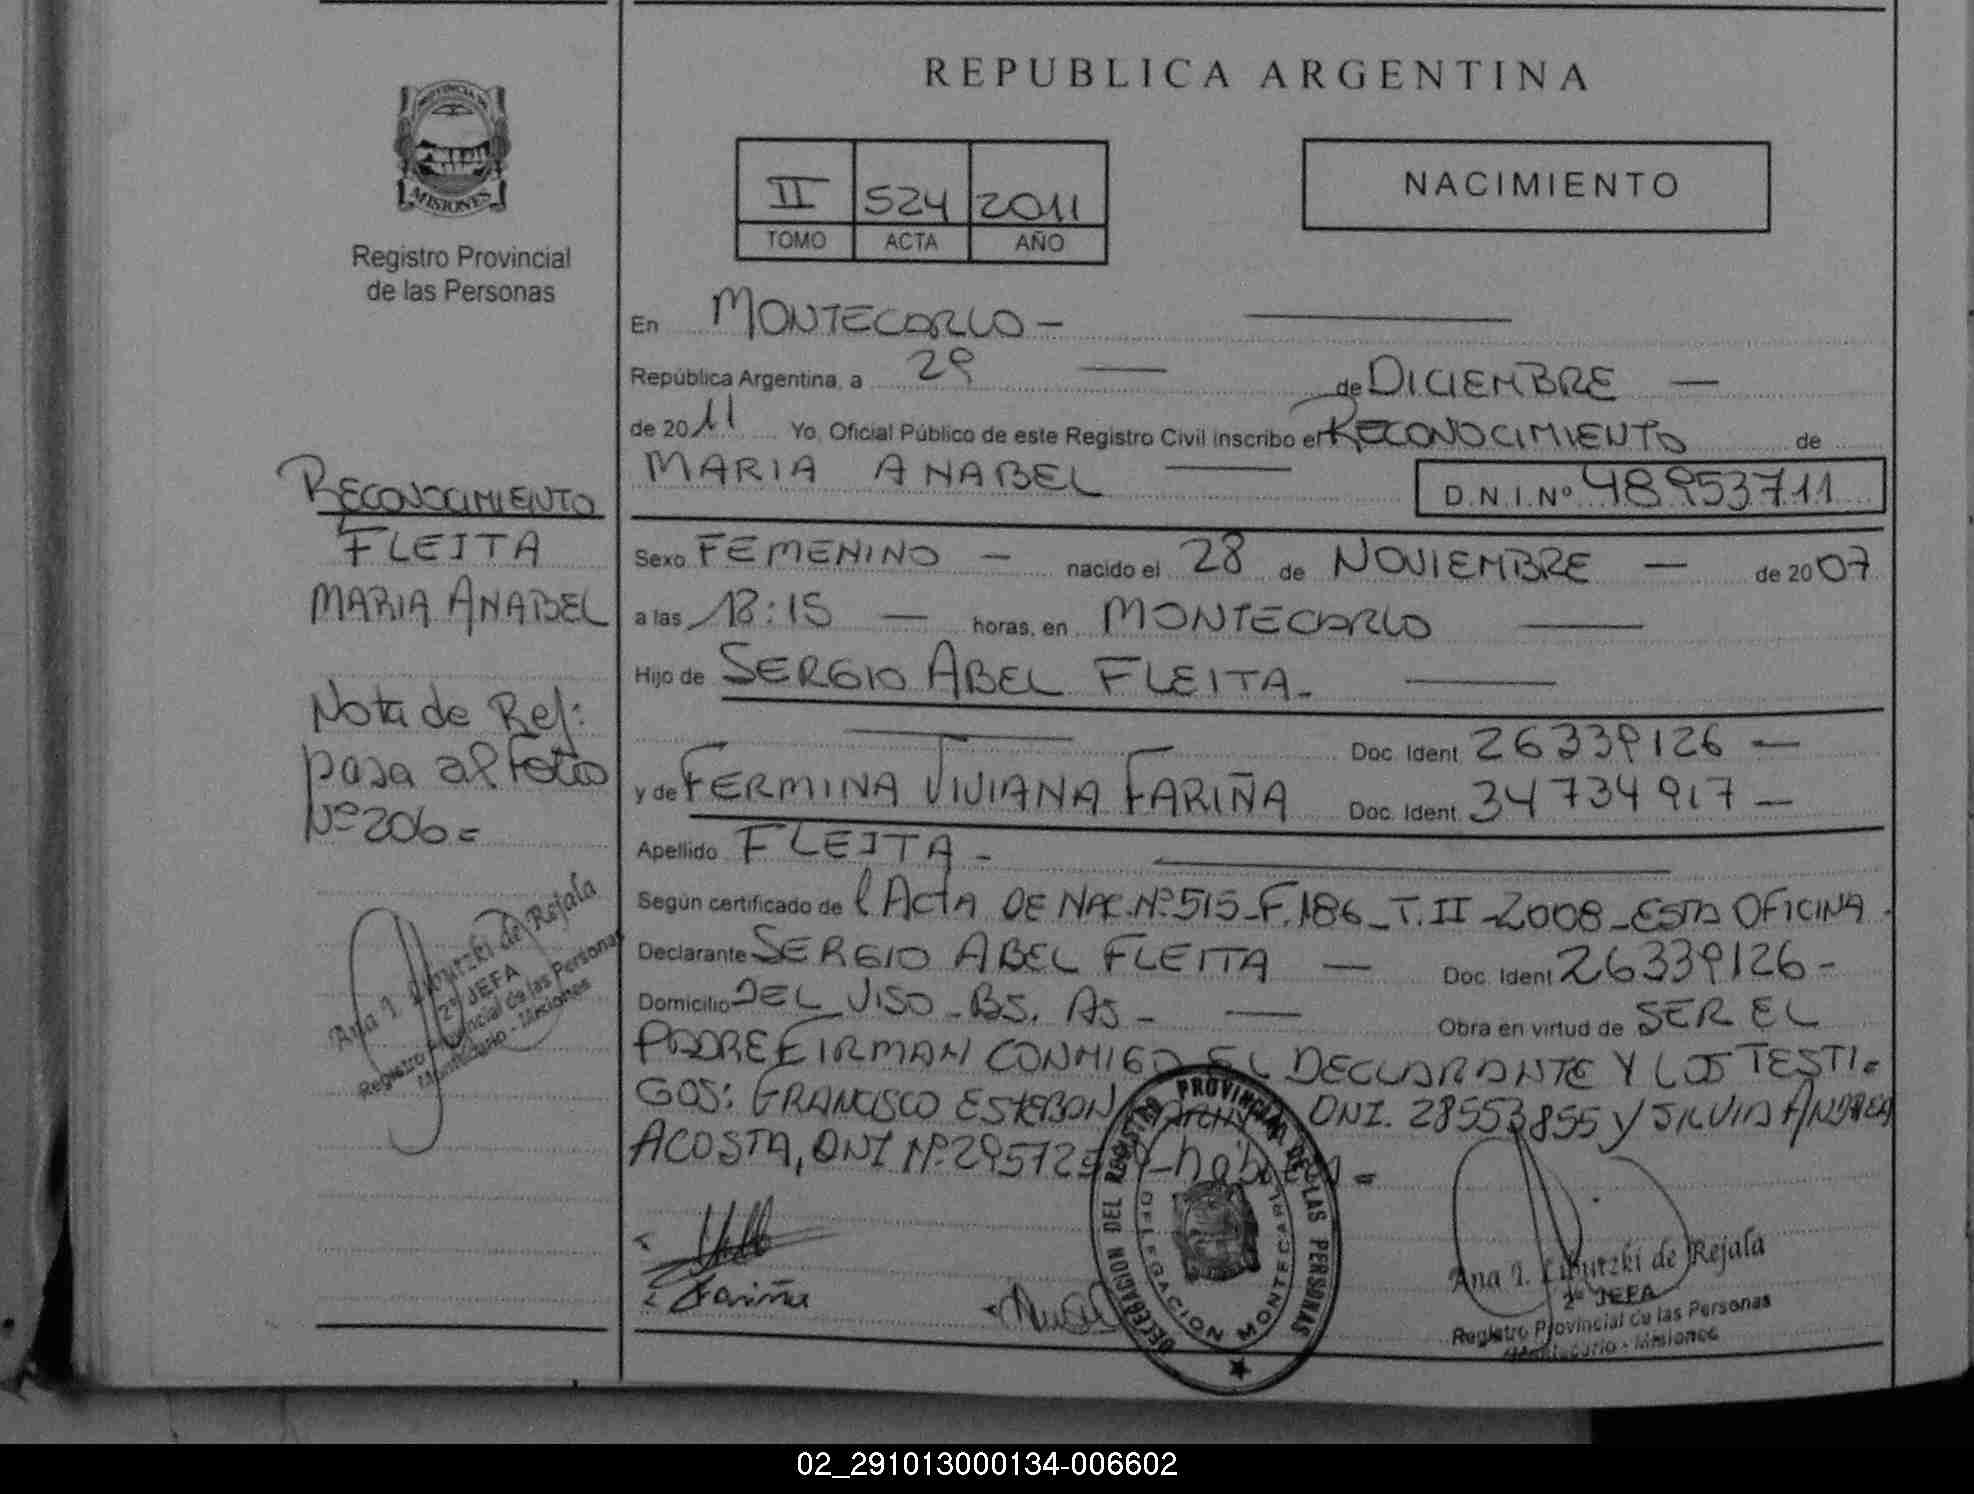 REPUBLICA ARGENTINA
PROVINCIA DE
MISIONES
Registro Provincial
de las Personas
II 524 2011
TOMO ACTA AÑO
NACIMIENTO
En MONTECARLO -
República Argentina, a 29 de DICIEMBRE
de 2011 Yo, Oficial Público de este Registro Civil inscribo el RECONOCIMIENTO de
MARIA ANABEL D.N.I.Nº 48953711
Sexo FEMENINO - nacido el 28 de NOVIEMBRE - de 2007
a las 18:15 - horas, en MONTECARLO
Hijo de SERGIO ABEL FLEITA.
Doc. Ident 26339126 -
y de FERMINA VIVIANA FARIÑA Doc. Ident. 34734917 -
Apellido FLEITA -
Según certificado de l'ACTA DE NAC. Nº 515-F.186-T.II-2008-ESTA OFICINA.
Declarante SERGIO ABEL FLEITA - Doc. Ident 26339126 -
Domicilio DEL VISO - BS. AS - Obra en virtud de SER EL
PADRE FIRMAN CONMIGO EL DECLARANTE Y LOS TESTI=
GOS: FRANCISCO ESTEBAN DNI. 28553855 y SILVIA ANDREA
ACOSTA, DNI Nº 295725
RECONOCIMIENTO
FLEITA
MARIA ANABEL
Nota de Ref:
pasa al Folio
Nº 206=
Ana I. de Rejala
2º JEFA
Registro Provincial de las Personas
Montecarlo - Misiones
Fariña
DELEGACION DEL REGISTRO PROVINCIAL DE LAS PERSONAS
DELEGACION MONTECARLO
Ana I. de Rejala
2º JEFA
Registro Provincial de las Personas
Montecarlo - Misiones
02_291013000134-006602